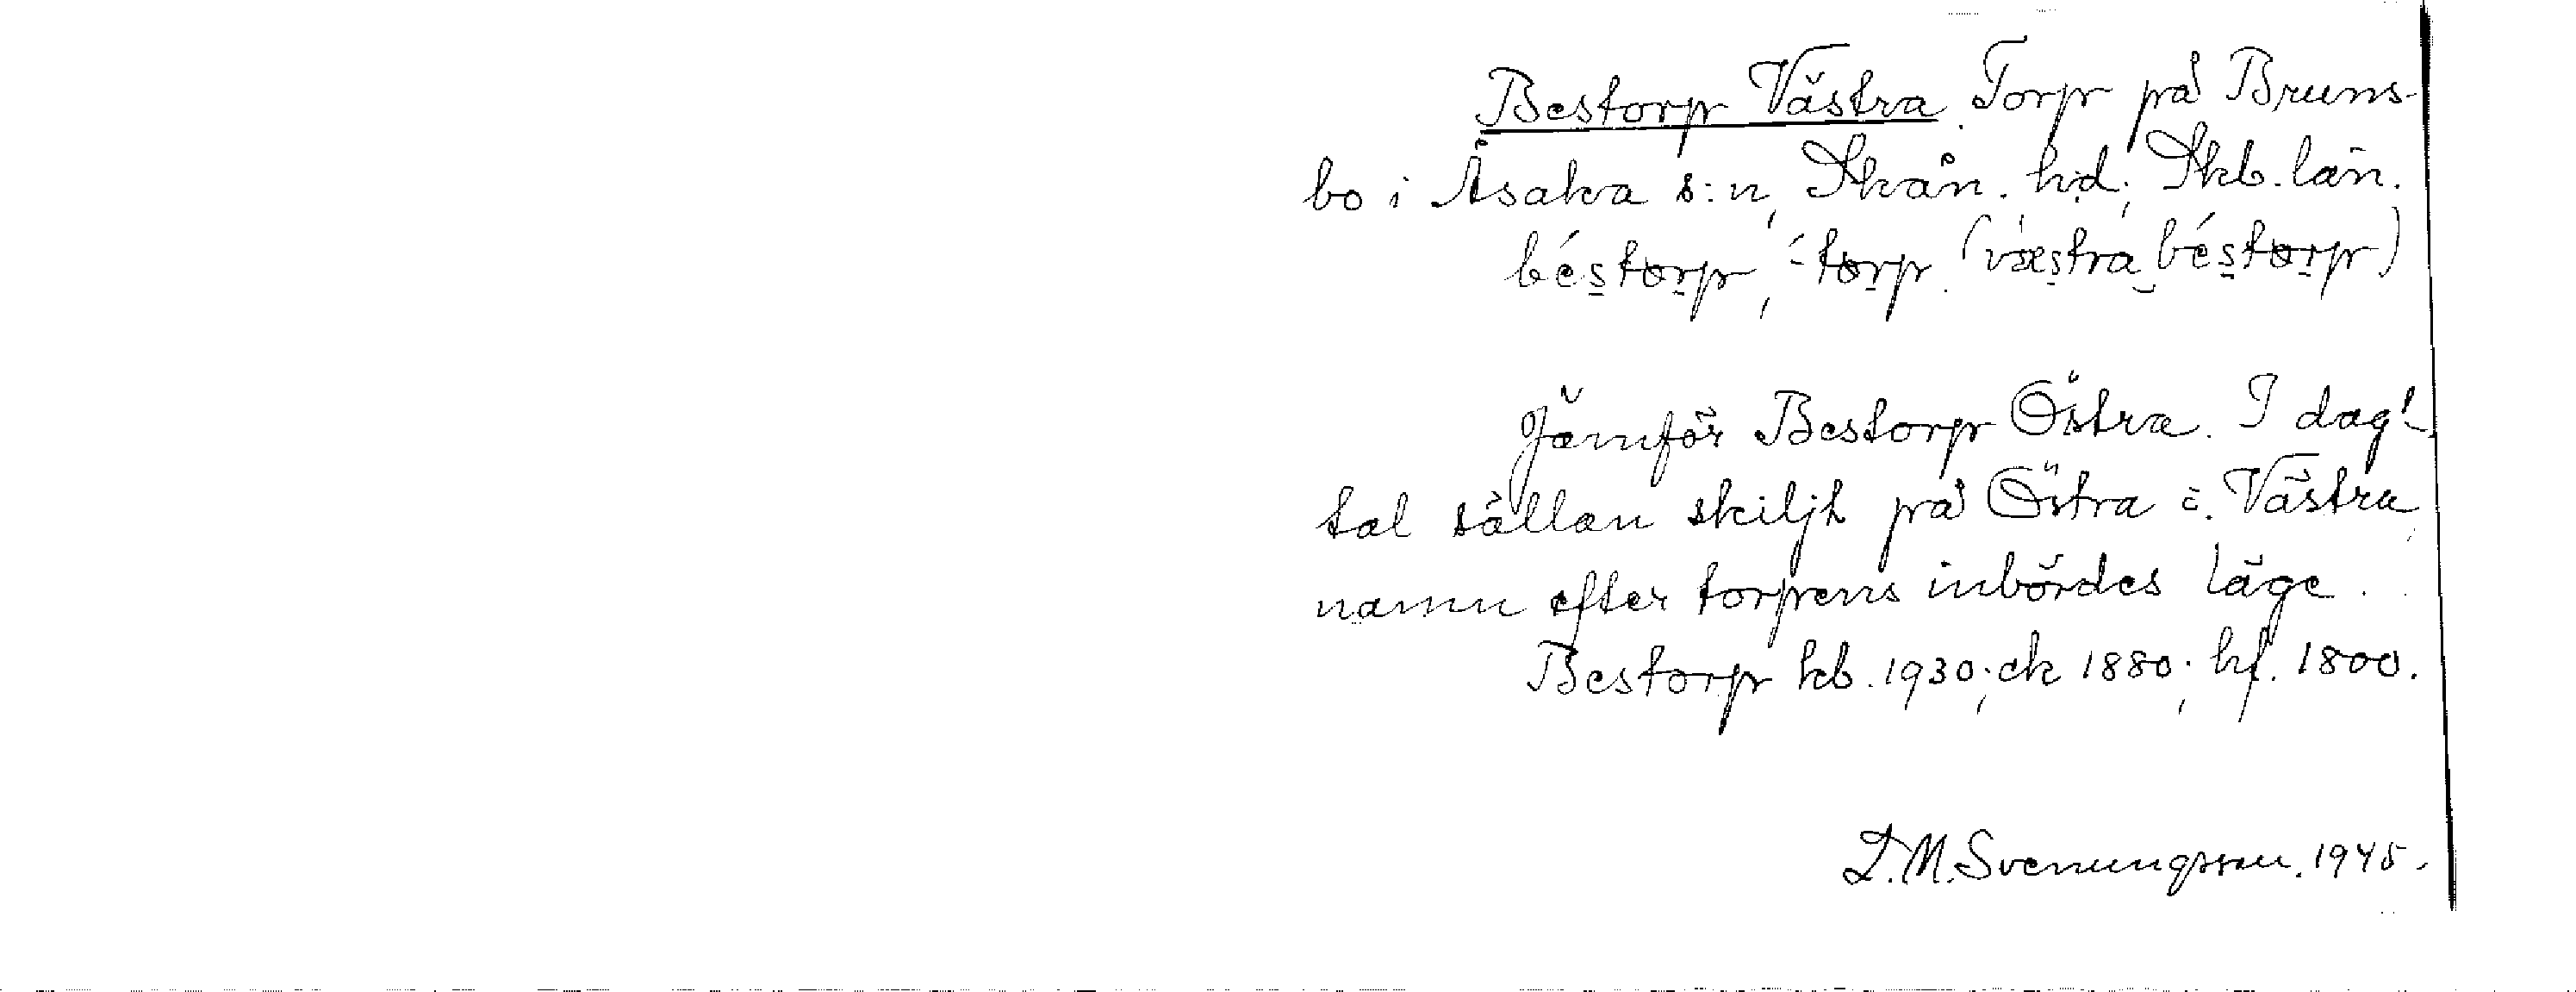 Bestorp Västra. Torp på Bruns-
bo i Åsaka s:n, Skån. hd; Skb. län.
béstorp, -́torp. (væstra béstorp)
Jämför Bestorp Östra. I dagl.
tal sällan skiljt på Östra o. Västra,
namn efter torpens inbördes läge.
Bestorp kb. 1930; ek 1880; hf. 1800.
D. M. Svenungsson. 1945.